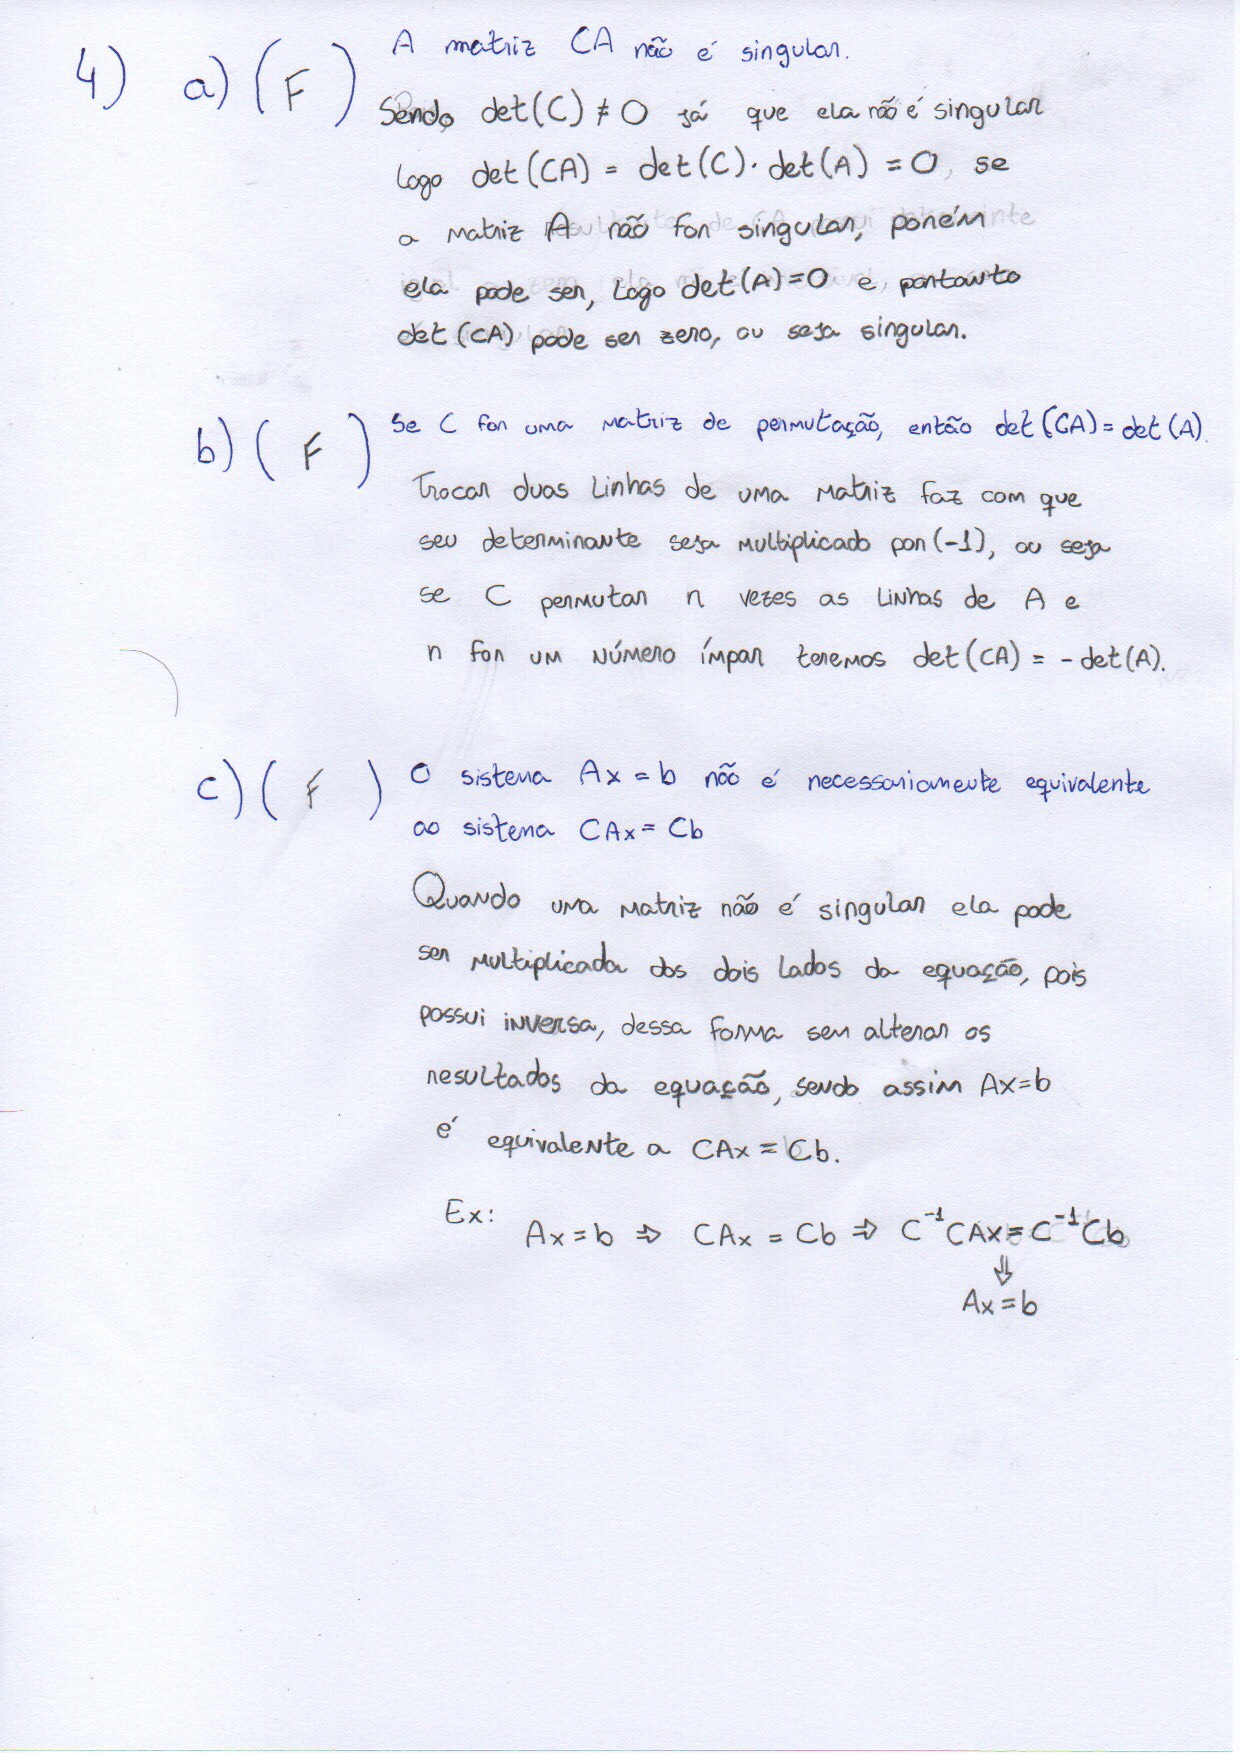 4) a) ( F ) A matriz CA não é singular.
Sendo, det(C) ≠ 0 já que ela não é singular
Logo det(CA) = det(C)·det(A) = 0, se
a matriz A não for singular, porém
ela pode ser, Logo det(A)=0 e portanto
det(CA) pode ser zero, ou seja singular.
b) ( F ) Se C for uma matriz de permutação, então det(CA)=det(A).
Trocar duas Linhas de uma matriz faz com que
seu determinante seja multiplicado por (-1), ou seja
se C permutar n vezes as Linhas de A e
n for um número ímpar teremos det(CA) = - det(A).
c) ( F ) O sistema Ax = b não é necessariamente equivalente
ao sistema CAx = Cb
Quando uma matriz não é singular ela pode
ser multiplicada dos dois lados da equação, pois
possui inversa, dessa forma sem alterar os
resultados da equação, sendo assim Ax=b
é equivalente a CAx = Cb.
Ex: Ax = b ⇒ CAx = Cb ⇒ C⁻¹CAx = C⁻¹Cb
⇓
Ax = b